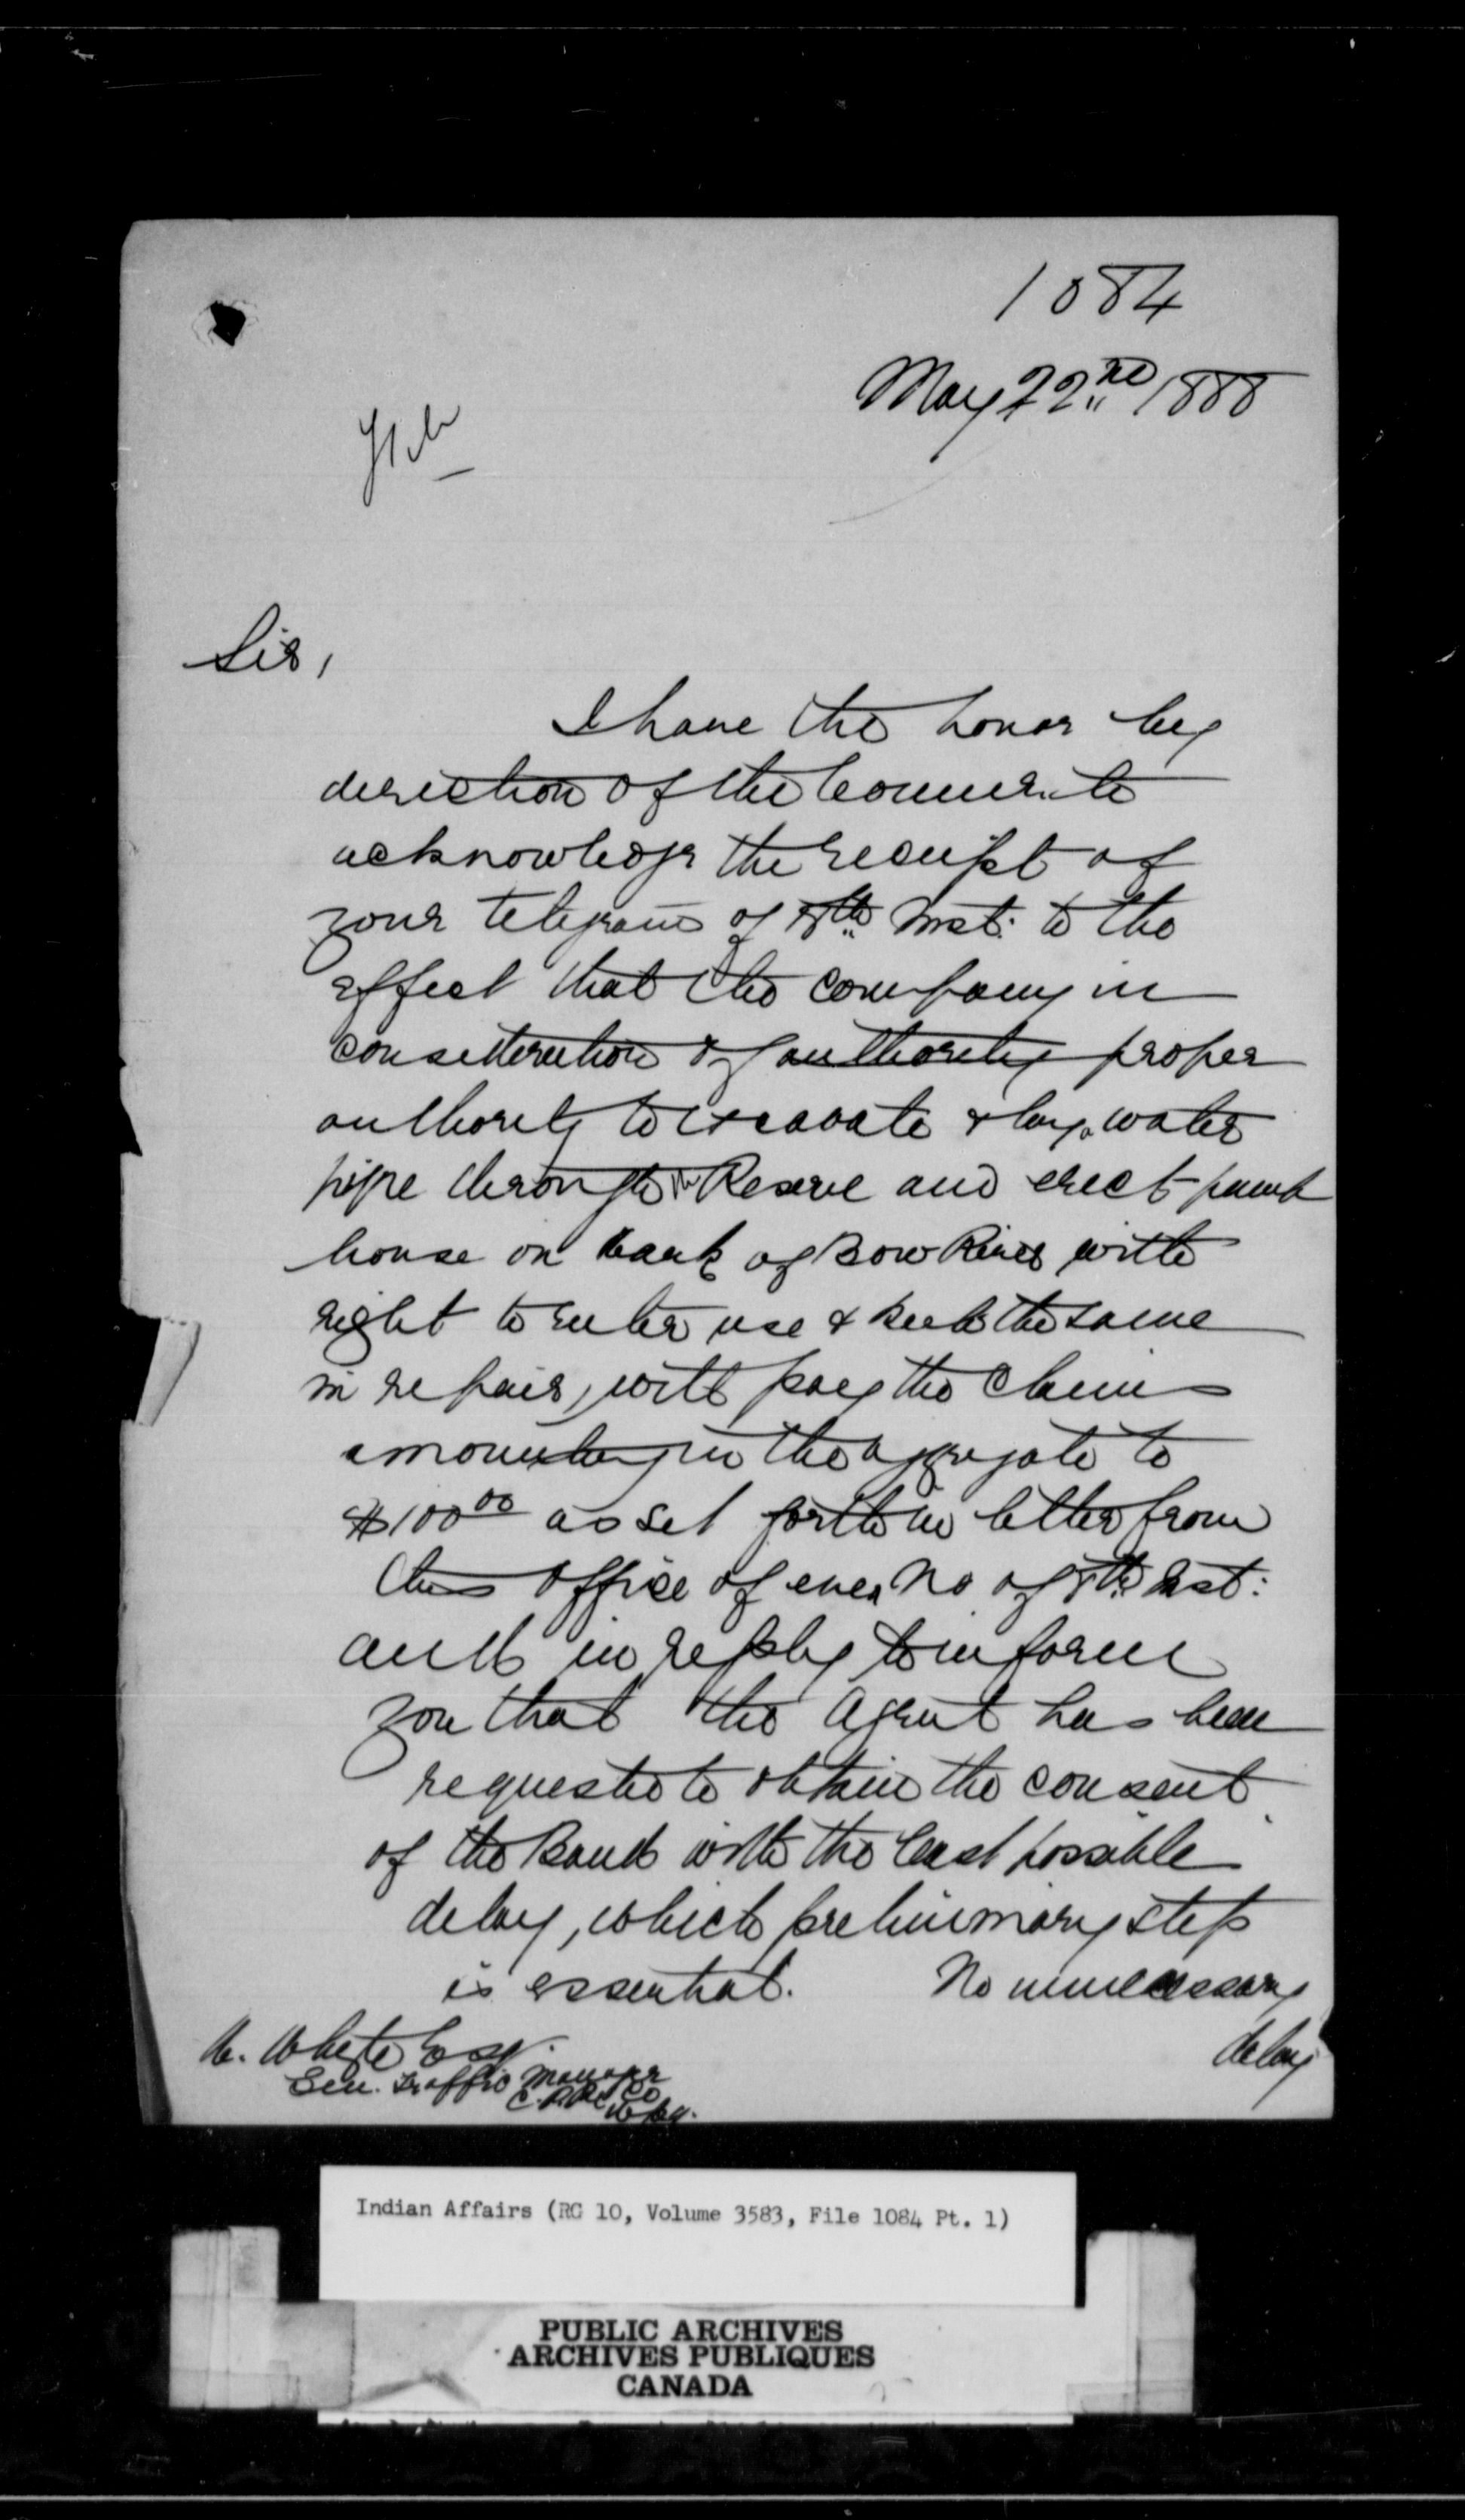 1084
May 22nd 1888
Sir,
I have the honor by
direction of the Commr. to
acknowledge the receipt of
your telegram of 18th Inst: to the
effect that the company in
consideration of authority proper
authority to excavate & lay water
pipe through the Reserve and erect pump
house on bank of Bow River with
right to enter use & keep the same
in repair, will pay the claims
amounting in the aggregate to
$100.00 as set forth in letter from
this office of even No of 8th Inst:
and in reply to inform
you that the Agent has been
requested to obtain the consent
of the Band with the least possible
delay, which preliminary step
is essential. No unnecessary
delay
W. Whyte Esq.
Gen. Traffic Manager
C.P.R. Co
Wpg.
Indian Affairs (RG 10, Volume 3583, File 1084 Pt. 1)
PUBLIC ARCHIVES
ARCHIVES PUBLIQUES
CANADA